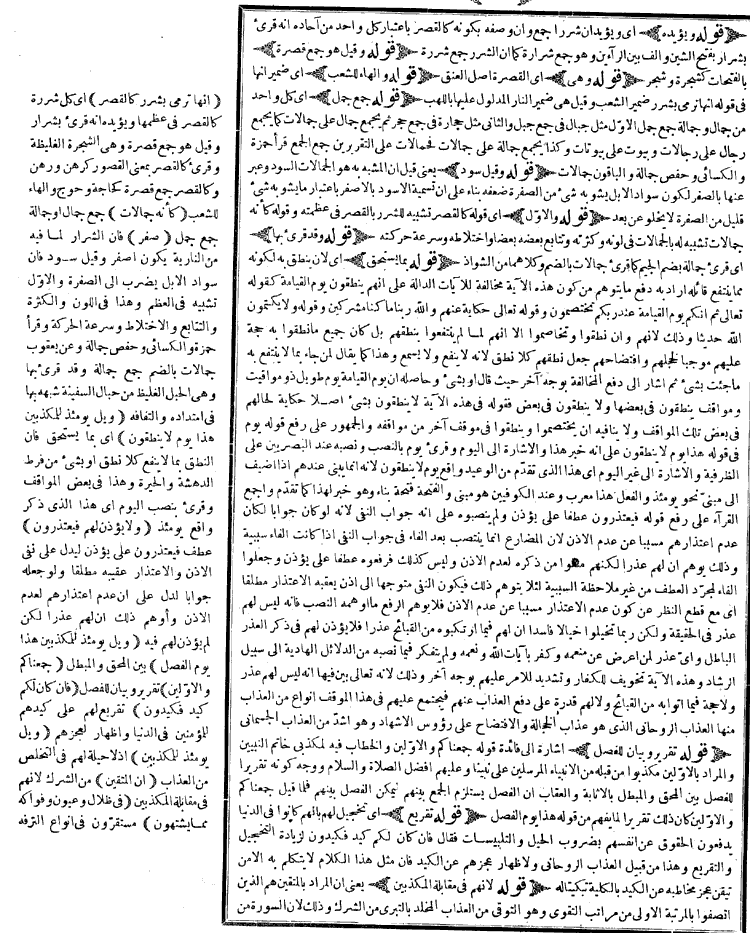 ﴿قوله ويؤيده﴾ اى ويؤيد ان شررا جمع وان وصفه بكونه كالقصر باعتبار كل واحد من آحاده انه قرئ
بشرار بفتح الشين والف بين الرآءين وهو جمع شرارة كما ان الشرر جمع شررة ﴿قوله وقيل هو جمع قصرة﴾
بالفتحات كشجرة وشجر ﴿قوله وهى﴾ اى القصرة اصل العنق ﴿قوله والهاء للشعب﴾ اى ضمير انها
فى قوله انها ترمى بشرر ضمير الشعب وقيل هى ضمير النار المدلول عليها باللهب ﴿قوله جمع جمل﴾ اى كل واحد
من جمال و جمالة جمع جمل الاوّل مثل جبال فى جمع جبل والثانى مثل حجارة فى جمع حجر ثم يجمع جمال على جمالات كما يجمع
رجال على رجالات و بيوت على بيوتات وكذا يجمع جمالة على جمالات فجمالات على التقريرين جمع الجمع قرأ حمزة
و الكسائى وحفص جمالة و الباقون جمالات ﴿قوله وقيل سود﴾ يعنى قيل ان المشبه به هو الجمالات السود وعبر
عنها بالصفر لكون سواد الابل يشوبه شئ من الصفرة ضعفه بناء على ان تسمية الاسود بالاصفر باعتبار ما يشوبه شئ
قليل من الصفرة لا يخلو عن بعد ﴿قوله والاوّل﴾ اى قوله كالقصر تشبيه للشرر بالقصر فى عظمته وقوله كأنه
جمالات تشبيه له بالجمالات فى لونه وكثرته وتتابع بعضه بعضا واختلاطه وسرعة حركته ﴿قوله وقد قرئ بها﴾
اى قرئ جمالة بضم الجيم كما قرئ جمالات بالضم وكلاهما من الشواذ ﴿قوله بما يستحق﴾ اى لان ينطق به لكونه
مما ينتفع قائله اراد به دفع ما يتوهم من كون هذه الآية مخالفة للآيات الدالة على انهم ينطقون يوم القيامة كقوله
تعالى ثم انكم يوم القيامة عند ربكم تختصمون وقوله تعالى حكاية عنهم و الله ربنا ما كنا مشركين وقوله ولا يكتمون
الله حديثا و ذلك لانهم و ان نطقوا و تخاصموا الا انهم لما لم ينتفعوا بنطقهم بل كان جميع ما نطقوا به حجة
عليهم موجبا لخجلهم و افتضاحهم جعل نطقهم كلا نطق لانه لا ينفع ولا يسمع وهذا كما يقال لمن جاء بما لا ينتفع به
ما جئت بشئ ثم اشار الى دفع المخالفة بوجه آخر حيث قال او بشئ وحاصله ان يوم القيامة يوم طويل ذو مواقيت
و مواقف ينطقون فى بعضها ولا ينطقون فى بعض فقوله فى هذه الآية لا ينطقون بشئ اصلا حكاية لحالهم
فى بعض تلك المواقف ولا ينافيه ان يختصموا و ينطقوا فى موقف آخر من مواقفه و الجمهور على رفع قوله يوم
فى قوله هذا يوم لا ينطقون على انه خبر هذا والاشارة الى اليوم وقرئ يوم بالنصب و نصبه عند البصريين على
الظرفية والاشارة الى غير اليوم اى هذا الذى تقدّم من الوعيد واقع يوم لا ينطقون لانه انما يبنى عندهم اذا اضيف
الى مبنىّ نحو يومئذ و الفعل هذا معرب وعند الكوفيين هو مبنى و الفتحة فتحة بناء وهو خبر لهذا كما تقدّم و اجمع
القرآء على رفع قوله فيعتذرون عطفا على يؤذن ولم ينصبوه على انه جواب النفى لانه لو كان جوابا لكان
عدم اعتذارهم مسببا عن عدم الاذن لان المضارع انما ينتصب بعد الفاء فى جواب النفى اذا كانت الفاء سببية
وذلك يوهم ان لهم عذرا لكنهم منعوا من ذكره لعدم الاذن وليس كذلك فرفعوه عطفا على يؤذن وجعلوا
الفاء لمجرّد العطف من غير ملاحظة السببية لئلا يتوهم ذلك فيكون النفى متوجها الى اذن يعقبه الاعتذار مطلقا
اى مع قطع النظر عن كون عدم الاعتذار مسببا عن عدم الاذن فلا يوهم الرفع ما اوهمه النصب فانه ليس لهم
عذر فى الحقيقة ولكن ربما تخيلوا خيالا فاسدا ان لهم فيما ارتكبوه من القبائح عذرا فلا يؤذن لهم فى ذكر العذر
الباطل و اىّ عذر لمن اعرض عن منعمه وكفر بآيات الله و نعمه ولم يتفكر فيما نصبه من الدلائل الهادية الى سبيل
الرشاد وهذه الآية تخويف للكفار و تشديد للامر عليهم بوجه آخر وذلك لانه تعالى بين فيها انه ليس لهم عذر
ولا حجة فيما اتوا به من القبائح ولا لهم قدرة على دفع العذاب عنهم فيجتمع عليهم فى هذا الموقف انواع من العذاب
منها العذاب الروحانى الذى هو عذاب الخجالة و الافتضاح على رؤوس الاشهاد وهو اشدّ من العذاب الجسمانى
﴿قوله تقرير وبيان للفصل﴾ اشارة الى فائدة قوله جمعناكم والاوّلين و الخطاب فيه لمكذبى خاتم النبيين
و المراد بالاوّلين مكذبوا من قبله من الانبياء المرسلين على نبينا وعليهم افضل الصلاة و السلام ووجه كونه تقريرا
للفصل بين المحق و المبطل بالاثابة و العقاب ان الفصل يستلزم الجمع بينهم ليمكن الفصل بينهم فلما قيل جمعناكم
و الاوّلين كان ذلك تقريرا لما يفهم من قوله هذا يوم الفصل ﴿قوله تقريع﴾ اى تخجيل لهم بانهم كانوا فى الدنيا
يدفعون الحقوق عن انفسهم بضروب الحيل و التلبيسات فقال فان كان لكم كيد فكيدون لزيادة التخجيل
و التقريع وهذا من قبيل العذاب الروحانى و لاظهار عجزهم عن الكيد فان مثل هذا الكلام لا يتكلم به الا من
تيقن عجز مخاطبه عن الكيد بالكلية تبكيتاله ﴿قوله لانهم فى مقابلة المكذبين﴾ يعنى ان المراد بالمتقين هم الذين
اتصفوا بالمرتبة الاولى من مراتب التقوى وهو التوقى من العذاب المخلد بالتبرى من الشرك وذلك لان السورة من
(انها ترمى بشرر كالقصر) اى كل شررة
كالقصر فى عظمها ويؤيده انه قرئ بشرار
وقيل هو جمع قصرة وهى الشجرة الغليظة
وقرئ كالقصر بمعنى القصور كرهن ورهن
وكالقصر جمع قصرة كحاجة وحوج والهاء
للشعب (كأنه جمالات) جمع جمال او جمالة
جمع جمل (صفر) فان الشرار لما فيه
من النارية يكون اصفر وقيل سود فان
سواد الابل يضرب الى الصفرة و الاوّل
تشبيه فى العظم وهذا فى اللون و الكثرة
و التتابع و الاختلاط و سرعة الحركة وقرأ
حمزة و الكسائى وحفص جمالة وعن يعقوب
جمالات بالضم جمع جمالة وقد قرئ بها
وهى الحبل الغليظ من حبال السفينة شبهه بها
فى امتداده و التفافه (ويل يومئذ للمكذبين
هذا يوم لا ينطقون) اى بما يستحق فان
النطق بما لا ينفع كلا نطق او بشئ من فرط
الدهشة و الحيرة وهذا فى بعض المواقف
وقرئ بنصب اليوم اى هذا الذى ذكر
واقع يومئذ (ولا يؤذن لهم فيعتذرون)
عطف فيعتذرون على يؤذن ليدل على نفى
الاذن و الاعتذار عقيبه مطلقا ولو جعله
جوابا لدل على ان عدم اعتذارهم لعدم
الاذن و أوهم ذلك ان لهم عذرا لكن
لم يؤذن لهم فيه (ويل يومئذ للمكذبين هذا
يوم الفصل) بين المحق و المبطل (جمعناكم
والاوّلين) تقرير وبيان للفصل (فان كان لكم
كيد فكيدون) تقريع لهم على كيدهم
للمؤمنين فى الدنيا و اظهار لعجزهم (ويل
يومئذ للمكذبين) اذ لا حيلة لهم فى التخلص
من العذاب (ان المتقين) من الشرك لانهم
فى مقابلة المكذبين (فى ظلال وعيون وفواكه
مما يشتهون) مستقرّون فى انواع الترفه